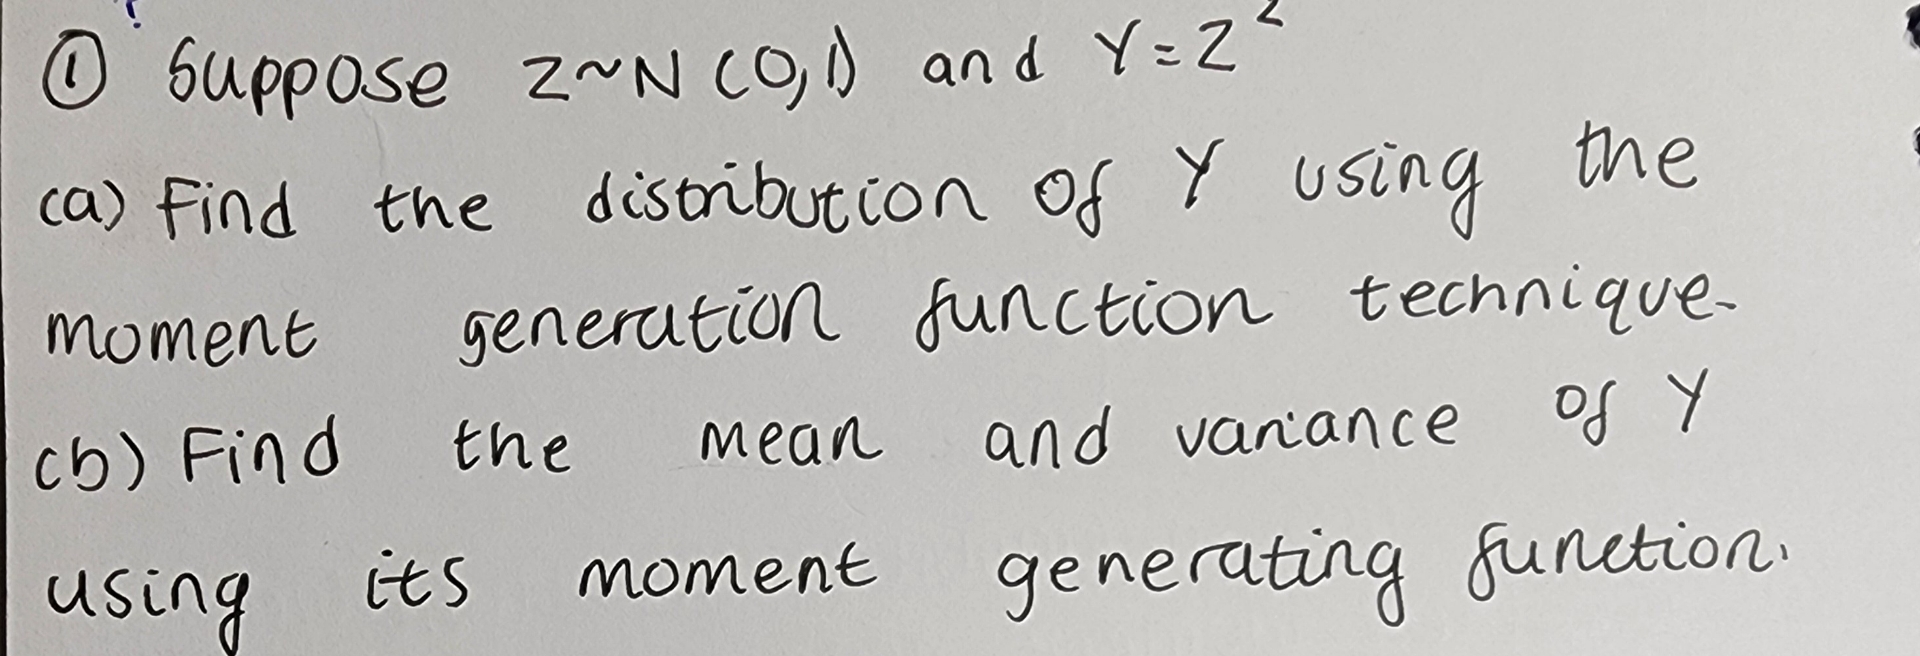 ① Suppose Z~N(0,1) and Y=Z²
(a) Find the distribution of Y using the
moment generation function technique.
(b) Find the mean and variance of Y
using its moment generating function.